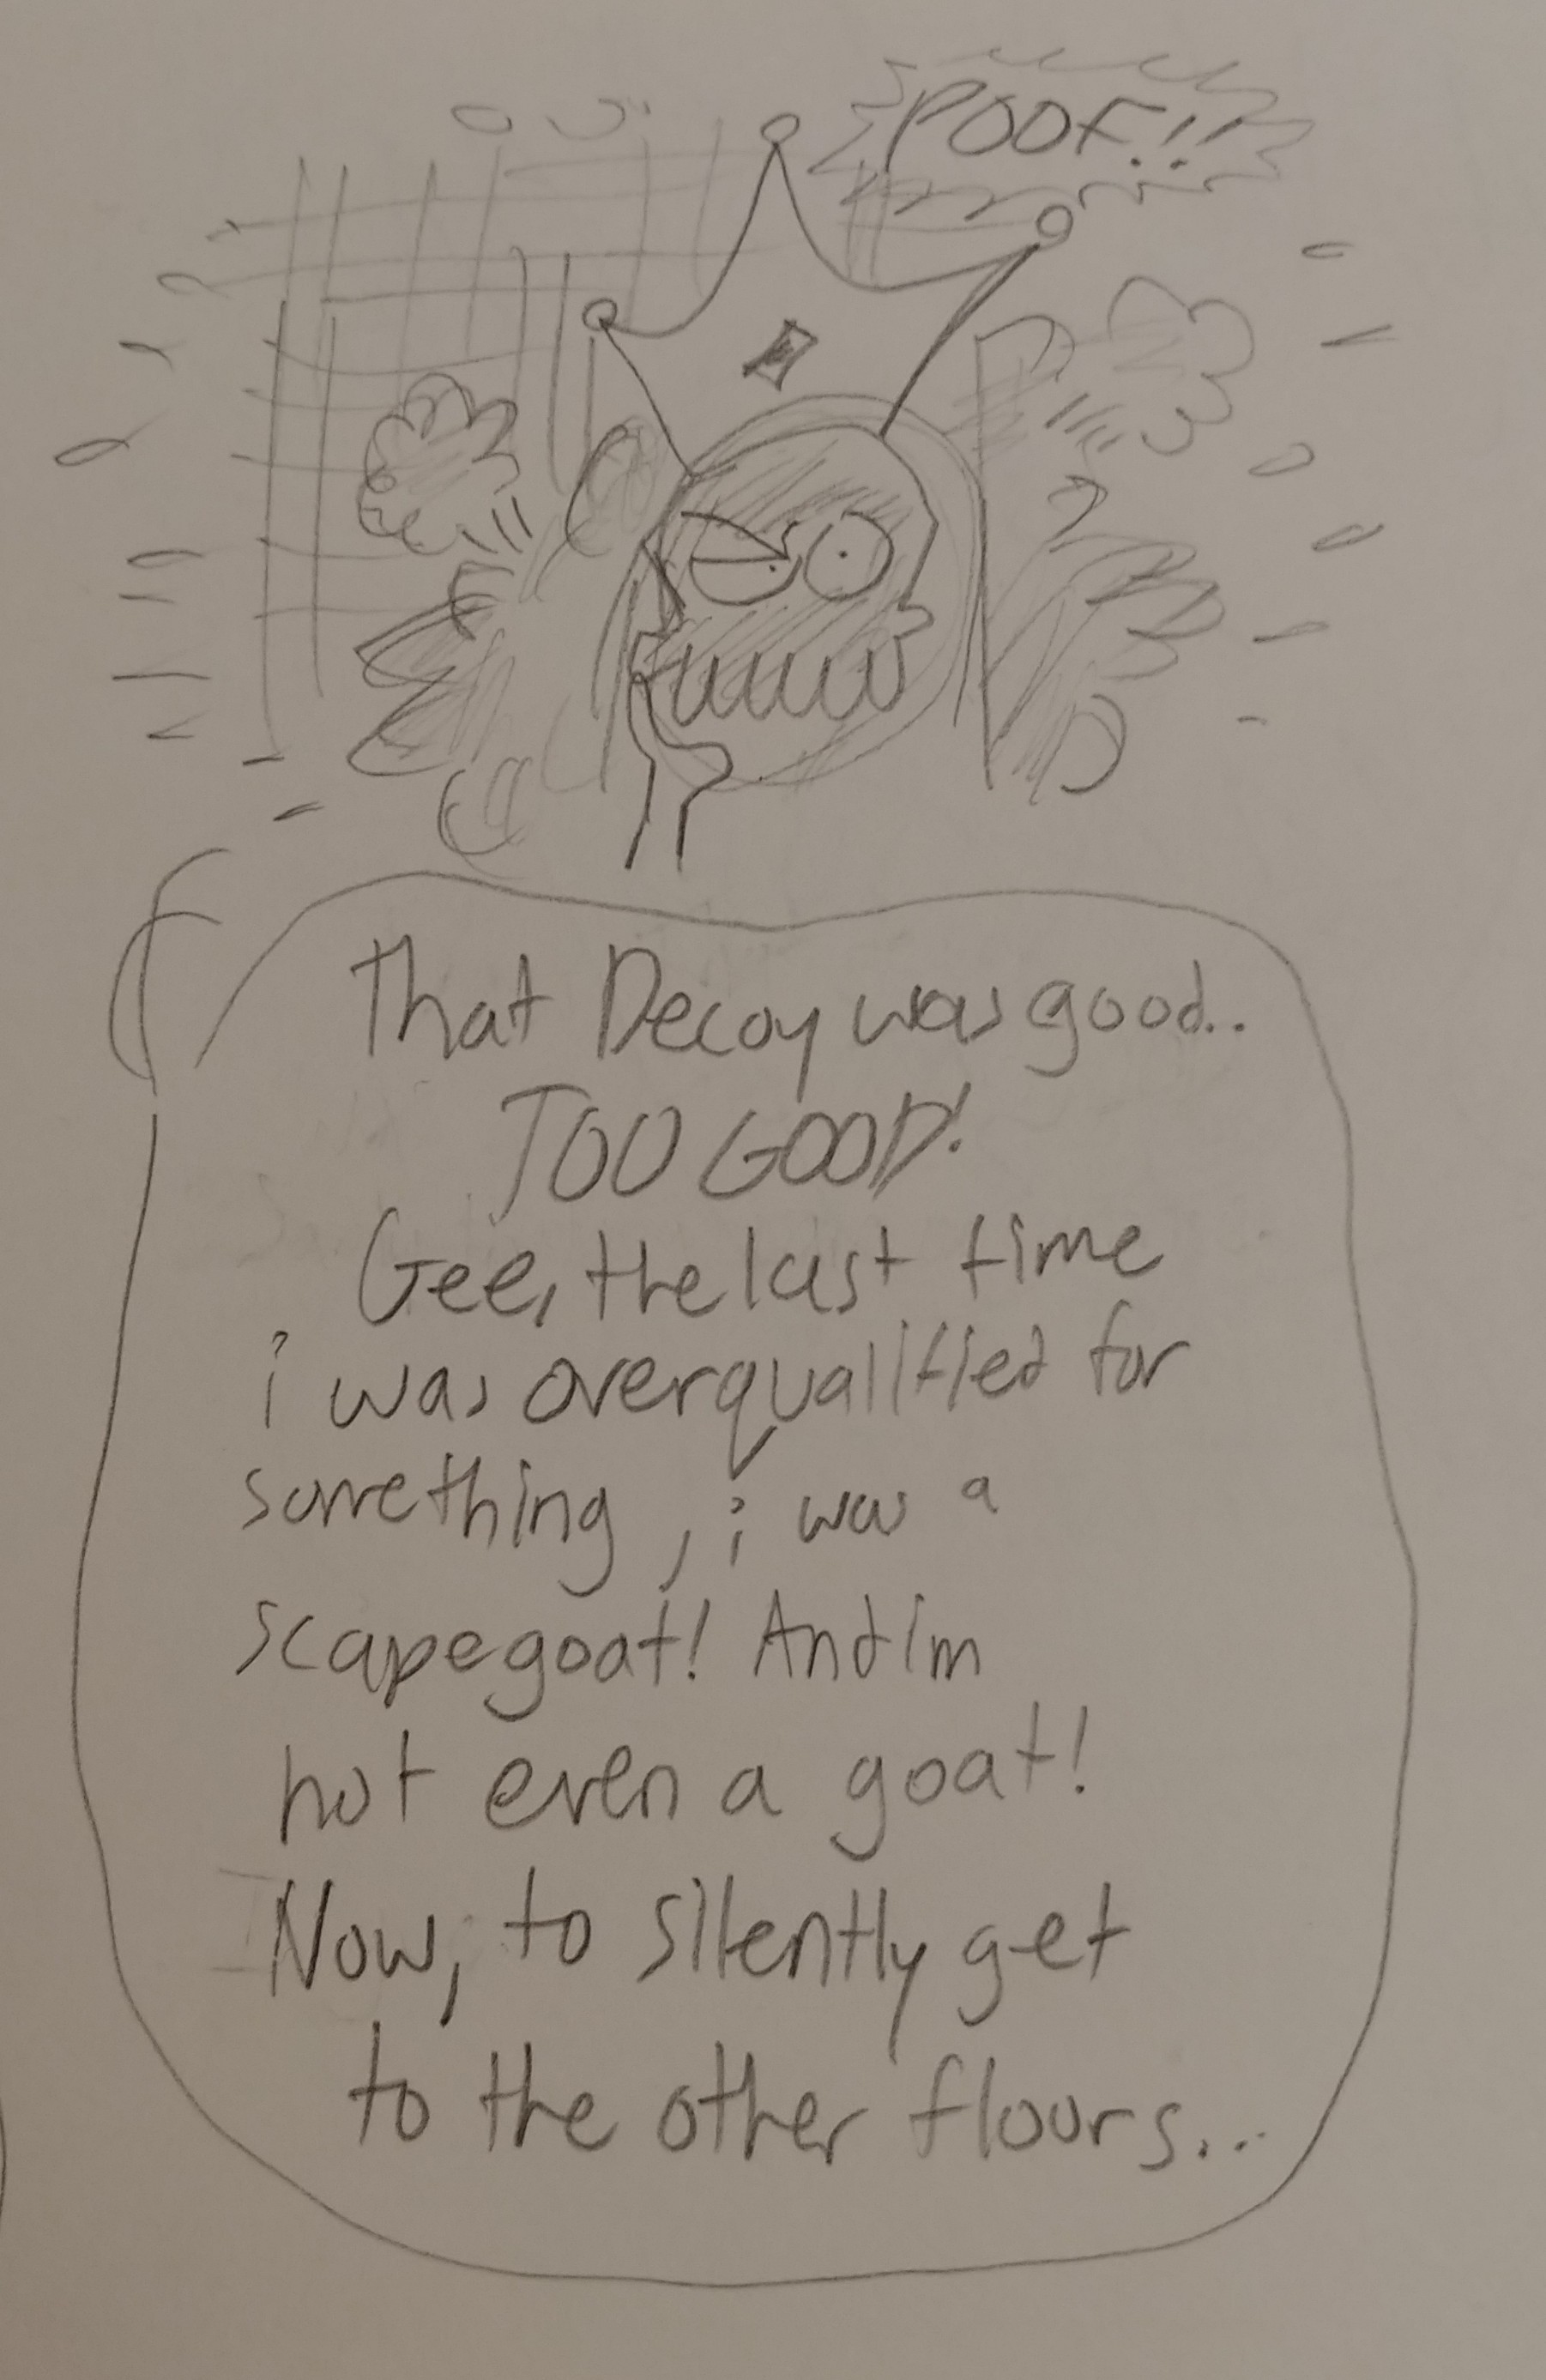 POOF!!
That Decoy was good..
TOO GOOD!
Gee, the last time
i was overqualified for
something, i was a
scapegoat! And im
not even a goat!
Now, to silently get
to the other floors...